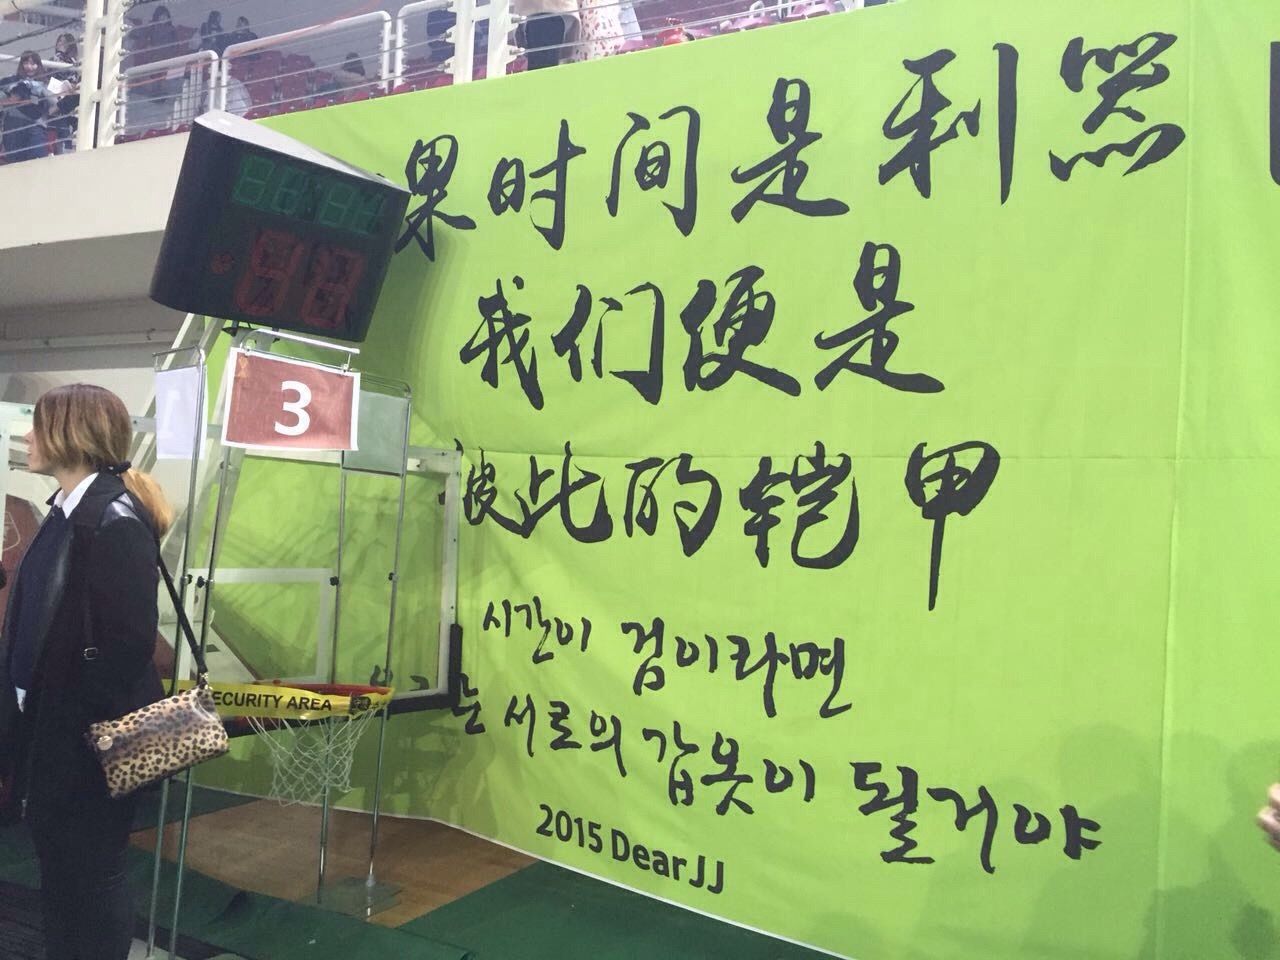 果时间是利器
我们便是
彼此的铠甲
시간이 검이라면
서로의 갑옷이 될거야
2015 DearJJ
3
ECURITY AREA